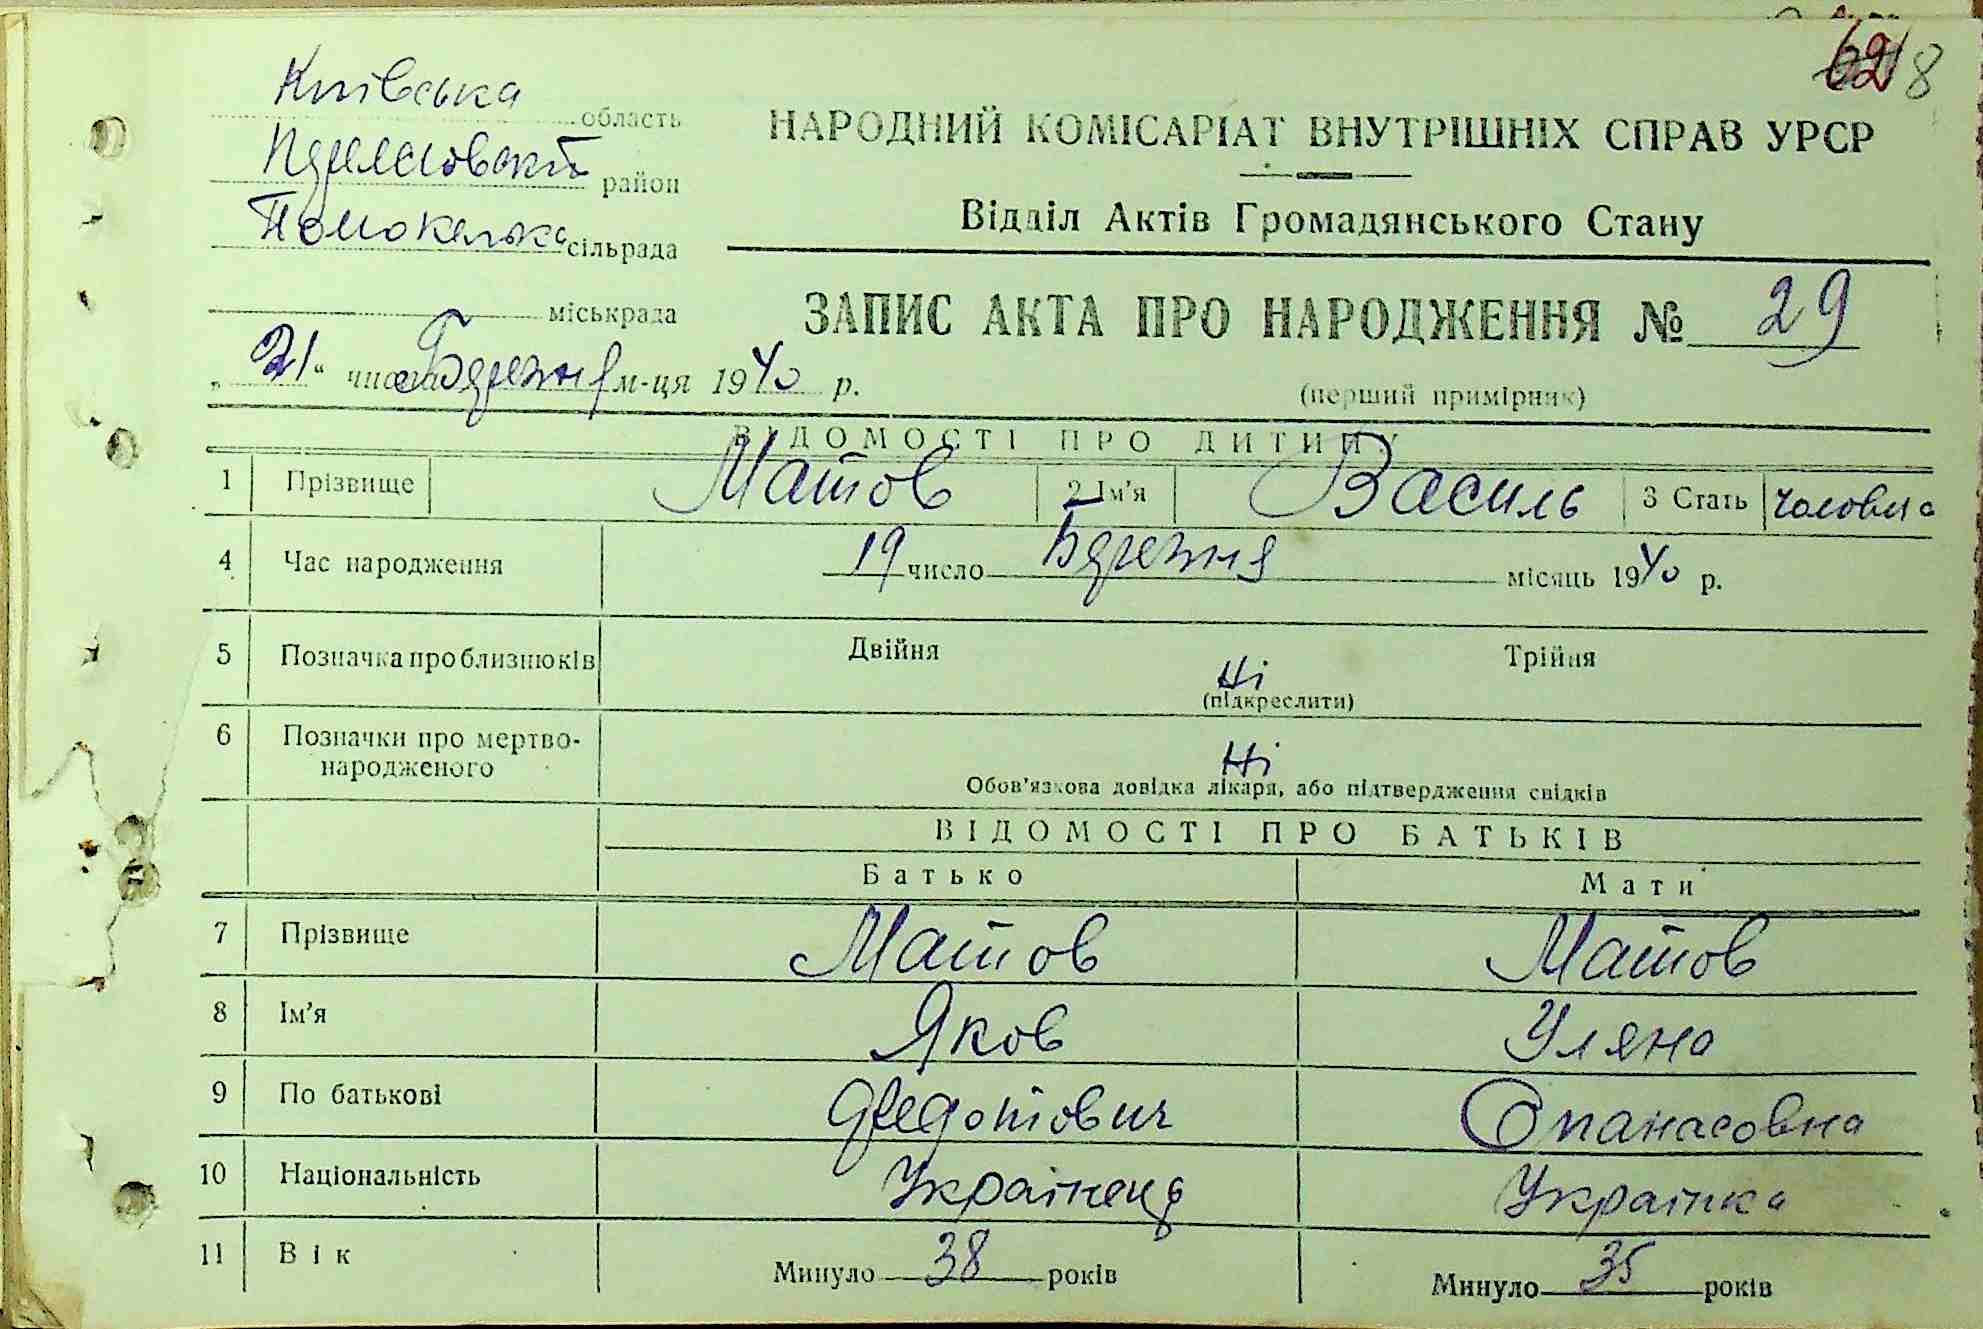 Київська область
район
сільрада
міськрада
8
НАРОДНИЙ КОМІСАРІАТ ВНУТРІШНІХ СПРАВ УРСР
Відділ Актів Громадянського Стану
ЗАПИС АКТА ПРО НАРОДЖЕННЯ № 29
(перший примірник)
„21“ числа Березня м-ця 1940 р.
ВІДОМОСТІ ПРО ДИТИНУ
1 Прізвище Матов 2 Ім'я Василь 3 Стать
4 Час народження 19 число Березня місяць 1940 р.
5 Позначка про близнюків Двійня Ні Трійня
(підкреслити)
6 Позначки про мертво-
народженого Ні
Обов'язкова довідка лікаря, або підтвердження свідків
ВІДОМОСТІ ПРО БАТЬКІВ
Батько Мати
7 Прізвище Матов Матов
8 Ім'я Яков Уляна
9 По батькові Федотович Опанасовна
10 Національність Українець Українка
11 Вік Минуло 38 років Минуло 35 років